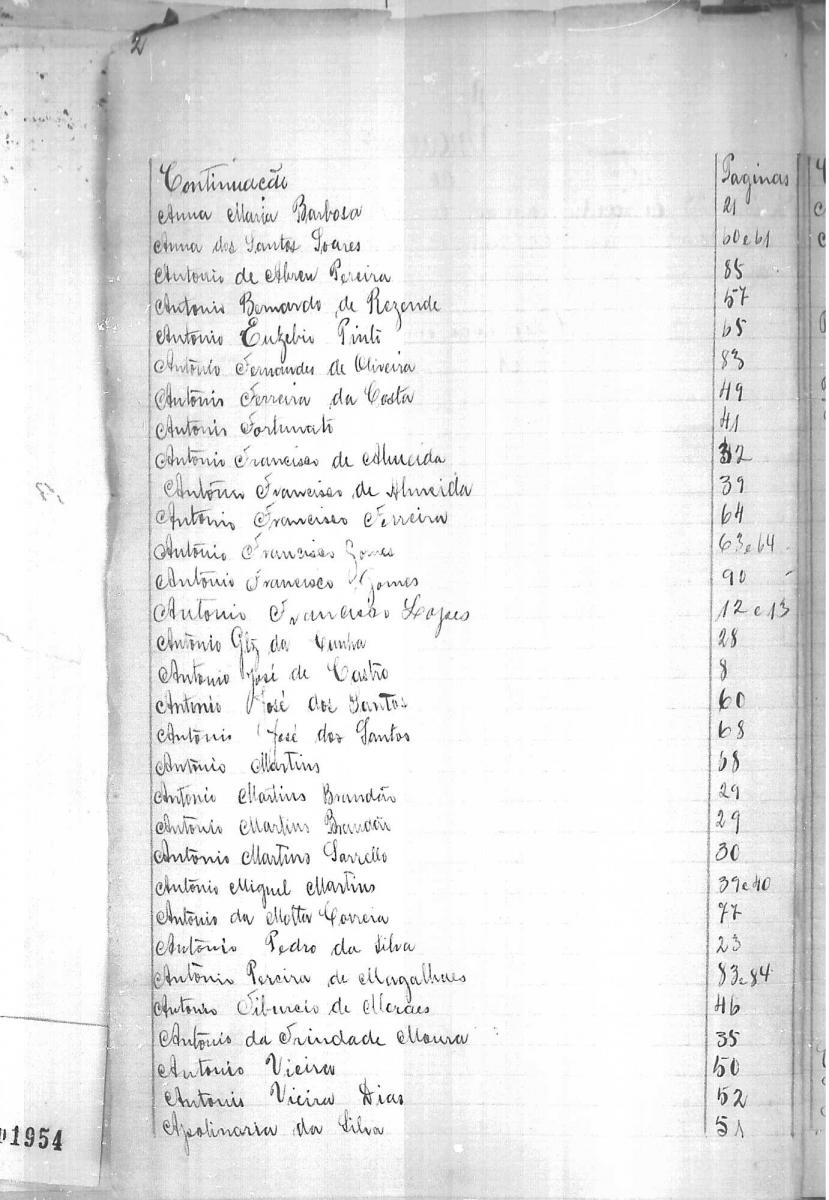 2
Continuação Paginas
Anna Maria Barbosa 21
Anna dos Santos Soares 60 e 61
Antonio de Abreu Pereira 85
Antonio Bernardo de Rezende 57
Antonio Euzebio Pinto 65
Antonio Fernandes de Oliveira 83
Antonio Ferreira da Costa 49
Antonio Fortunato 41
Antonio Francisco de Almeida 32
Antonio Francisco de Almeida 39
Antonio Francisco Ferreira 64
Antonio Francisco Gomes 63 e 64
Antonio Francisco Gomes 90
Antonio Francisco Lopes 12 e 13
Antonio Glz da Cunha 28
Antonio José de Castro 8
Antonio José dos Santos 60
Antonio José dos Santos 68
Antonio Martins 68
Antonio Martins Brandão 29
Antonio Martins Brandão 29
Antonio Martins 30
Antonio Miguel Martins 39 e 40
Antonio da Motta Correia 77
Antonio Pedro da Silva 23
Antonio Pereira de Magalhaes 83 e 84
Antonio Tiburcio de Moraes 46
Antonio da Trindade Moura 35
Antonio Vieira 50
Antonio Vieira Dias 52
Apolinaria da Silva 51
1954